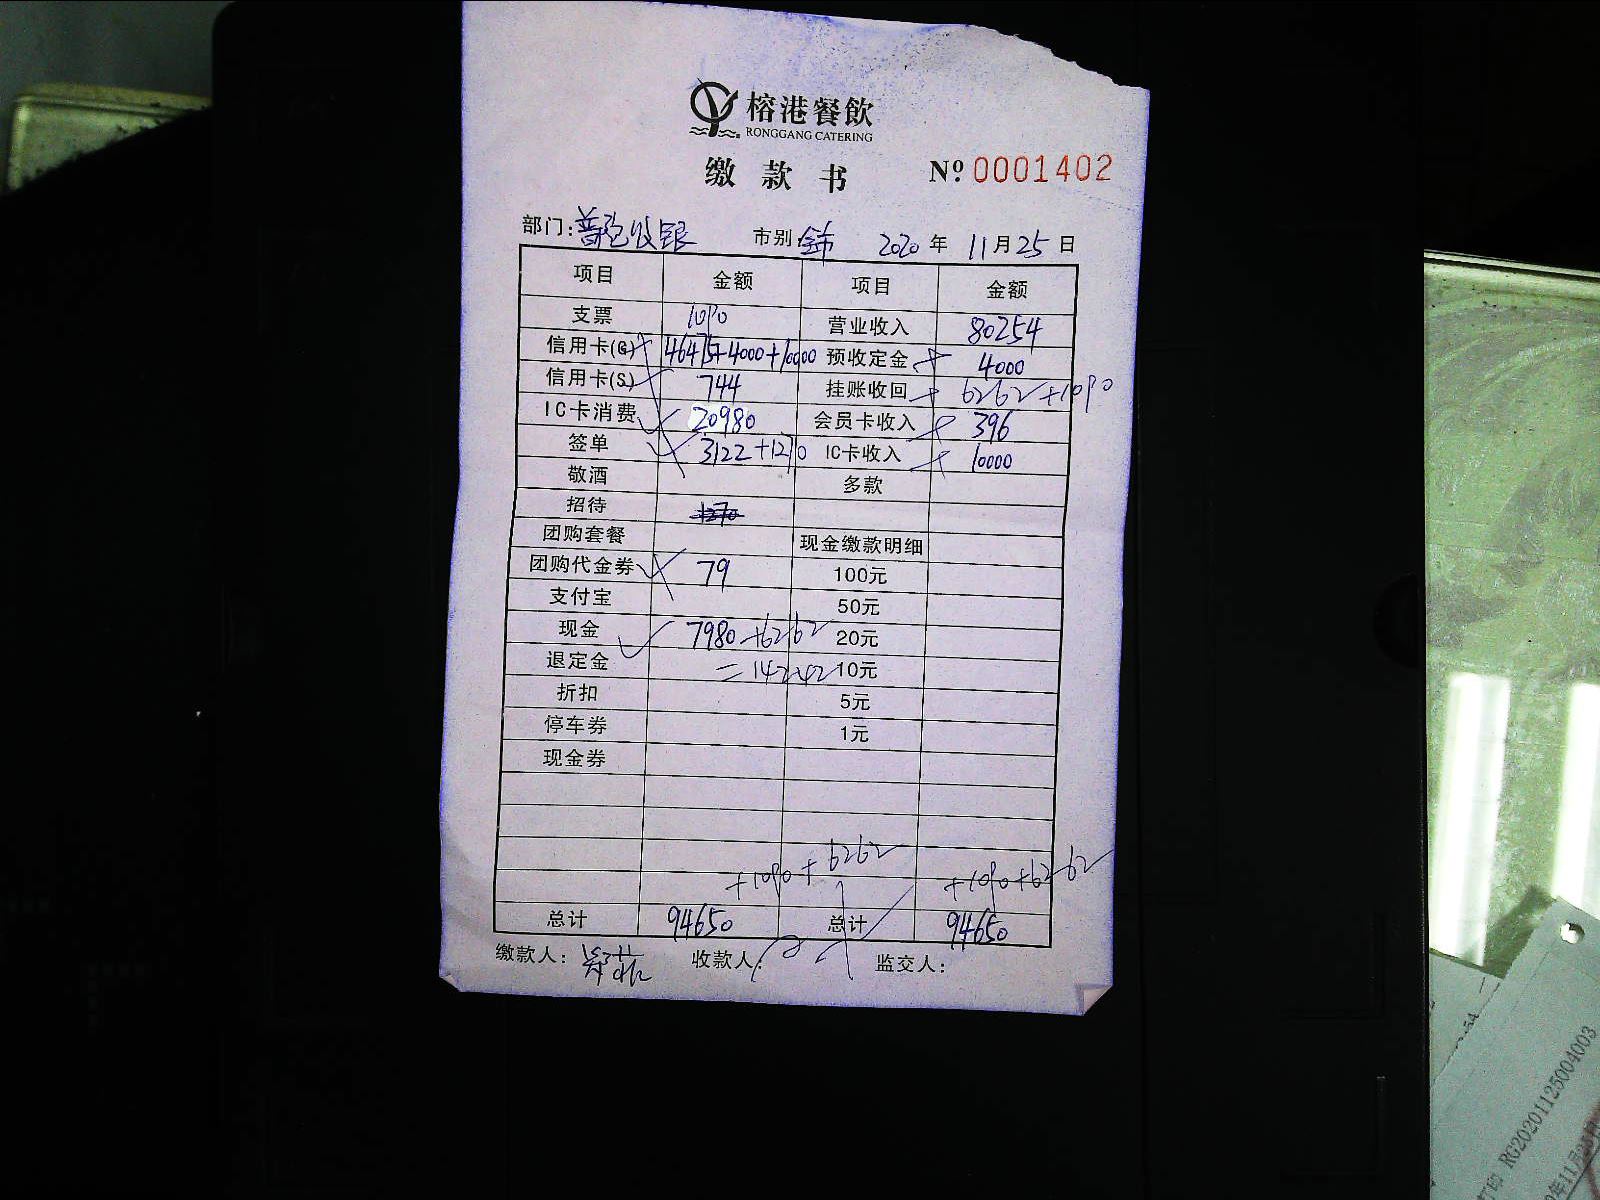 榕港餐飲
RONGGANG CATERING
缴款书 № 0001402
部门: 收银 市别 2020年 11月25日
项目 金额 项目 金额
支票 1090 营业收入 80254
信用卡(G) 46475+4000+10000 预收定金 4000
信用卡(S) 744 挂账收回 6262+1090
IC卡消费 20980 会员卡收入 396
签单 3122+1270 IC卡收入 10000
敬酒 多款
招待 1270
团购套餐 现金缴款明细
团购代金券 79 100元
支付宝 50元
现金 7980+6262 20元
退定金 =14242 10元
折扣 5元
停车券 1元
现金券
+1090+6262 +1090+6262
总计 94650 总计 94650
缴款人: 收款人: 监交人:
RG20201125004003